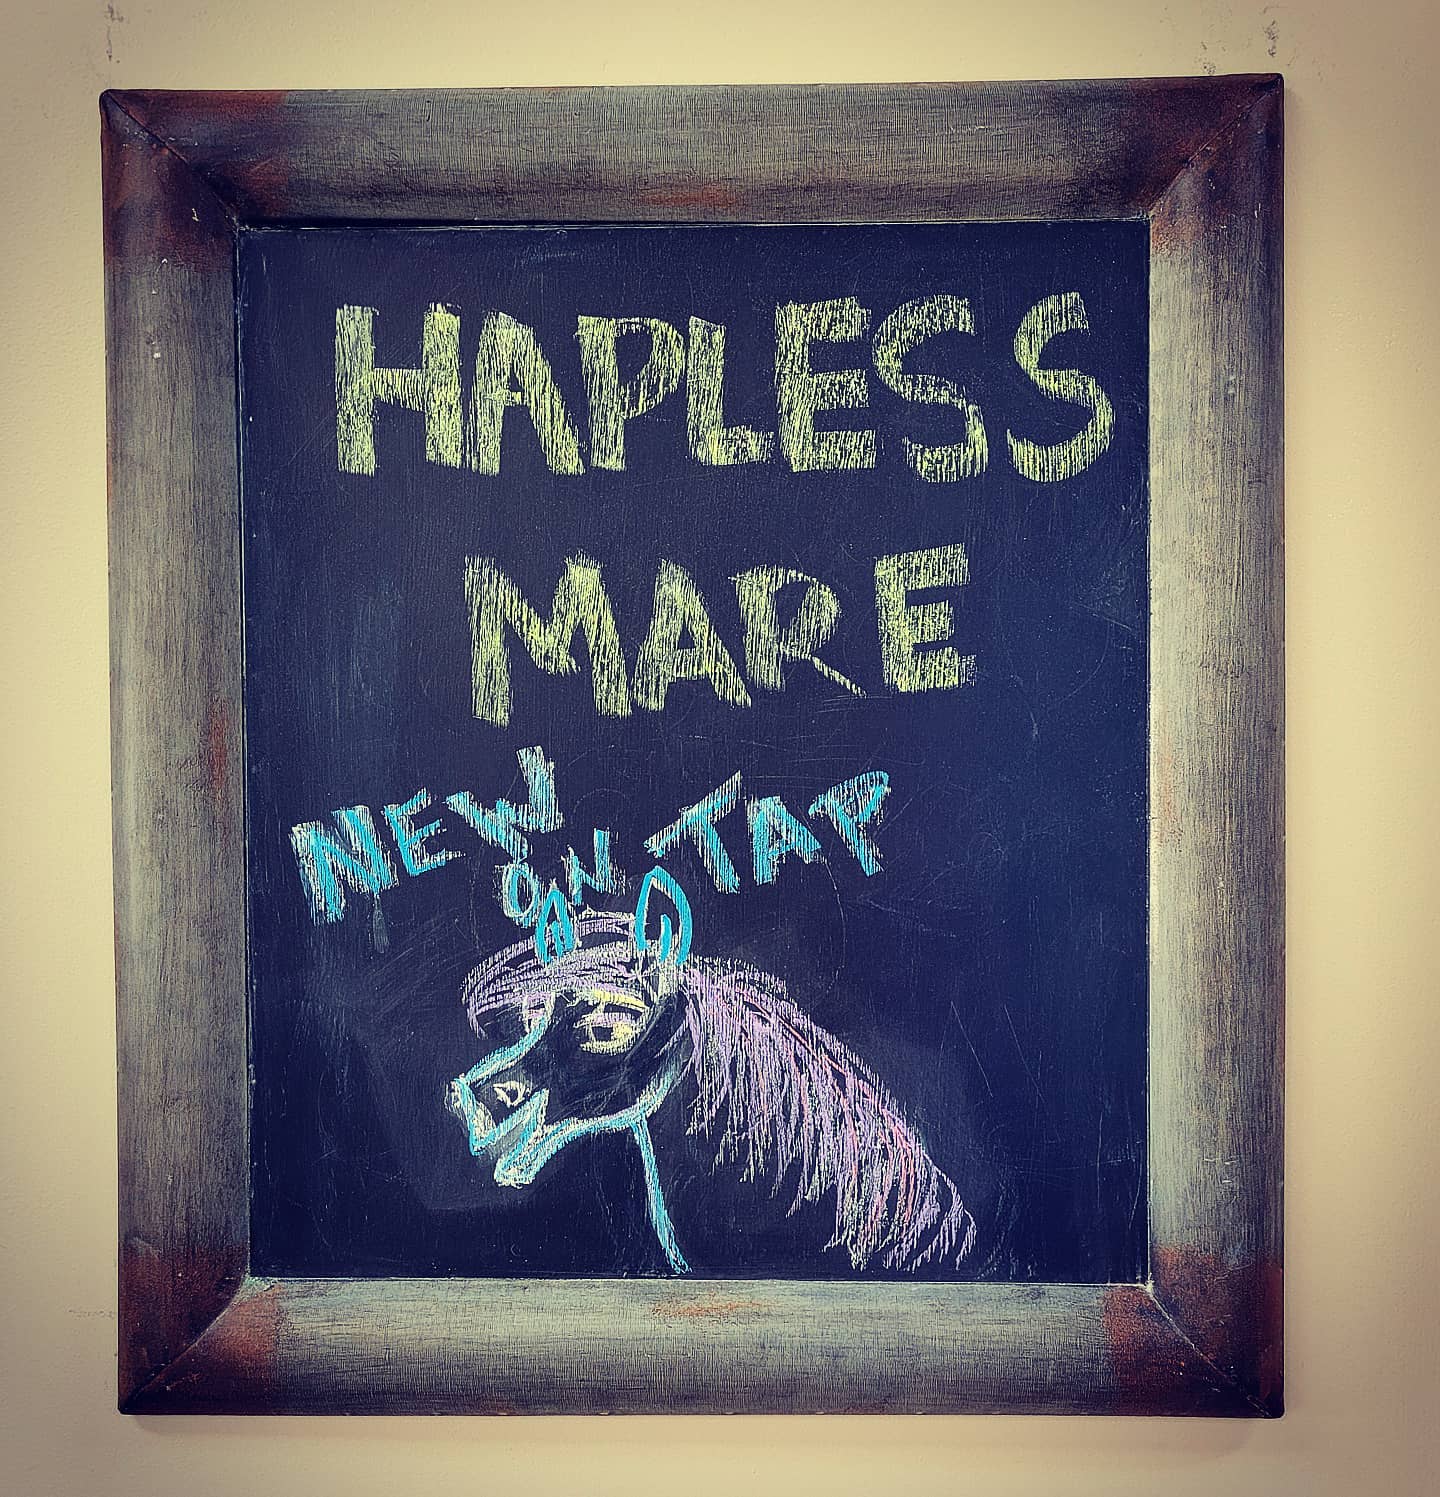 HAPLESS
MARE
NEW ON TAP